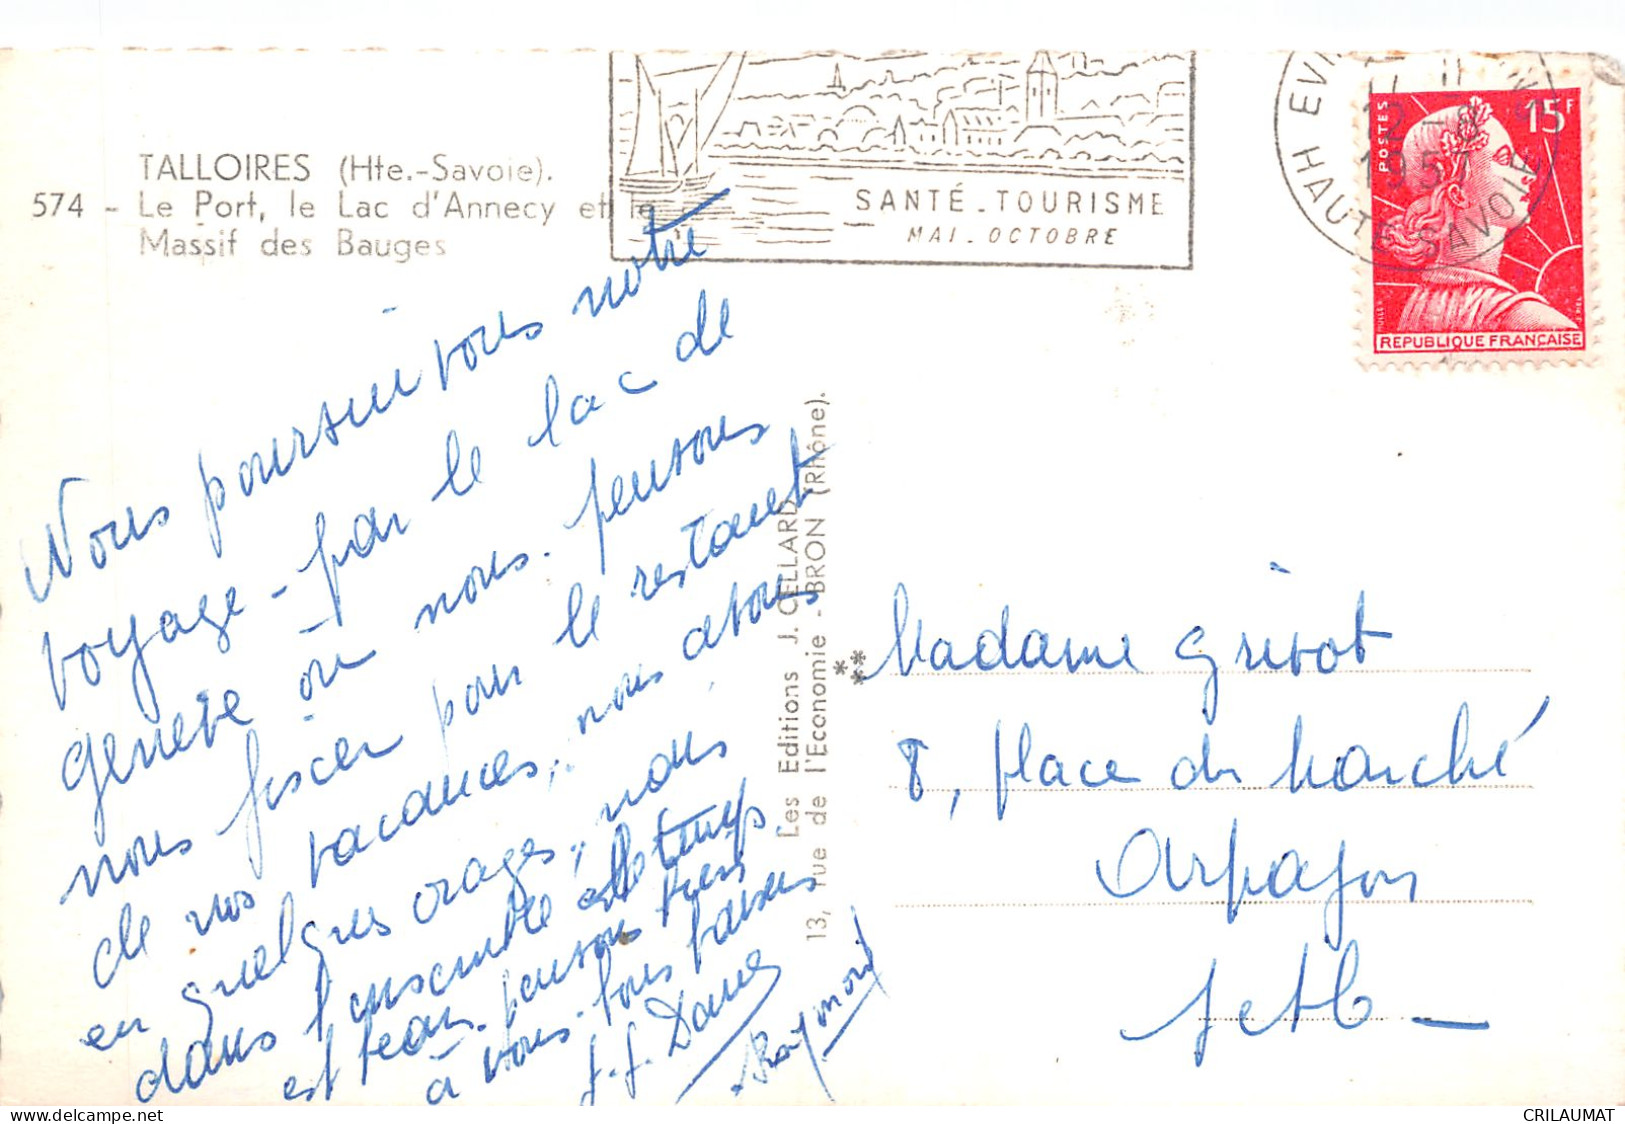 TALLOIRES (Hte.-Savoie).
574 - Le Port, le Lac d'Annecy et le
Massif des Bauges
SANTÉ - TOURISME
MAI - OCTOBRE
EVI
HAUTE SAVOIE
12 - 8
1957
POSTES
15F
REPUBLIQUE FRANÇAISE
Nous poursuivons notre
voyage - par le lac de
Genève où nous pensons
nous fixer pour le restant
de nos vacances, nous avons
eu quelques orages, nous
dans l'ensemble le temps
est beau. pensons bien
à vous. bons baisers
Raymond
Les Editions J. CELLARD
13, rue de l'Economie - BRON (Rhône).
Madame Grivot
8, place du Marché
Arpajon
S et O -
www.delcampe.net
CRILAUMAT